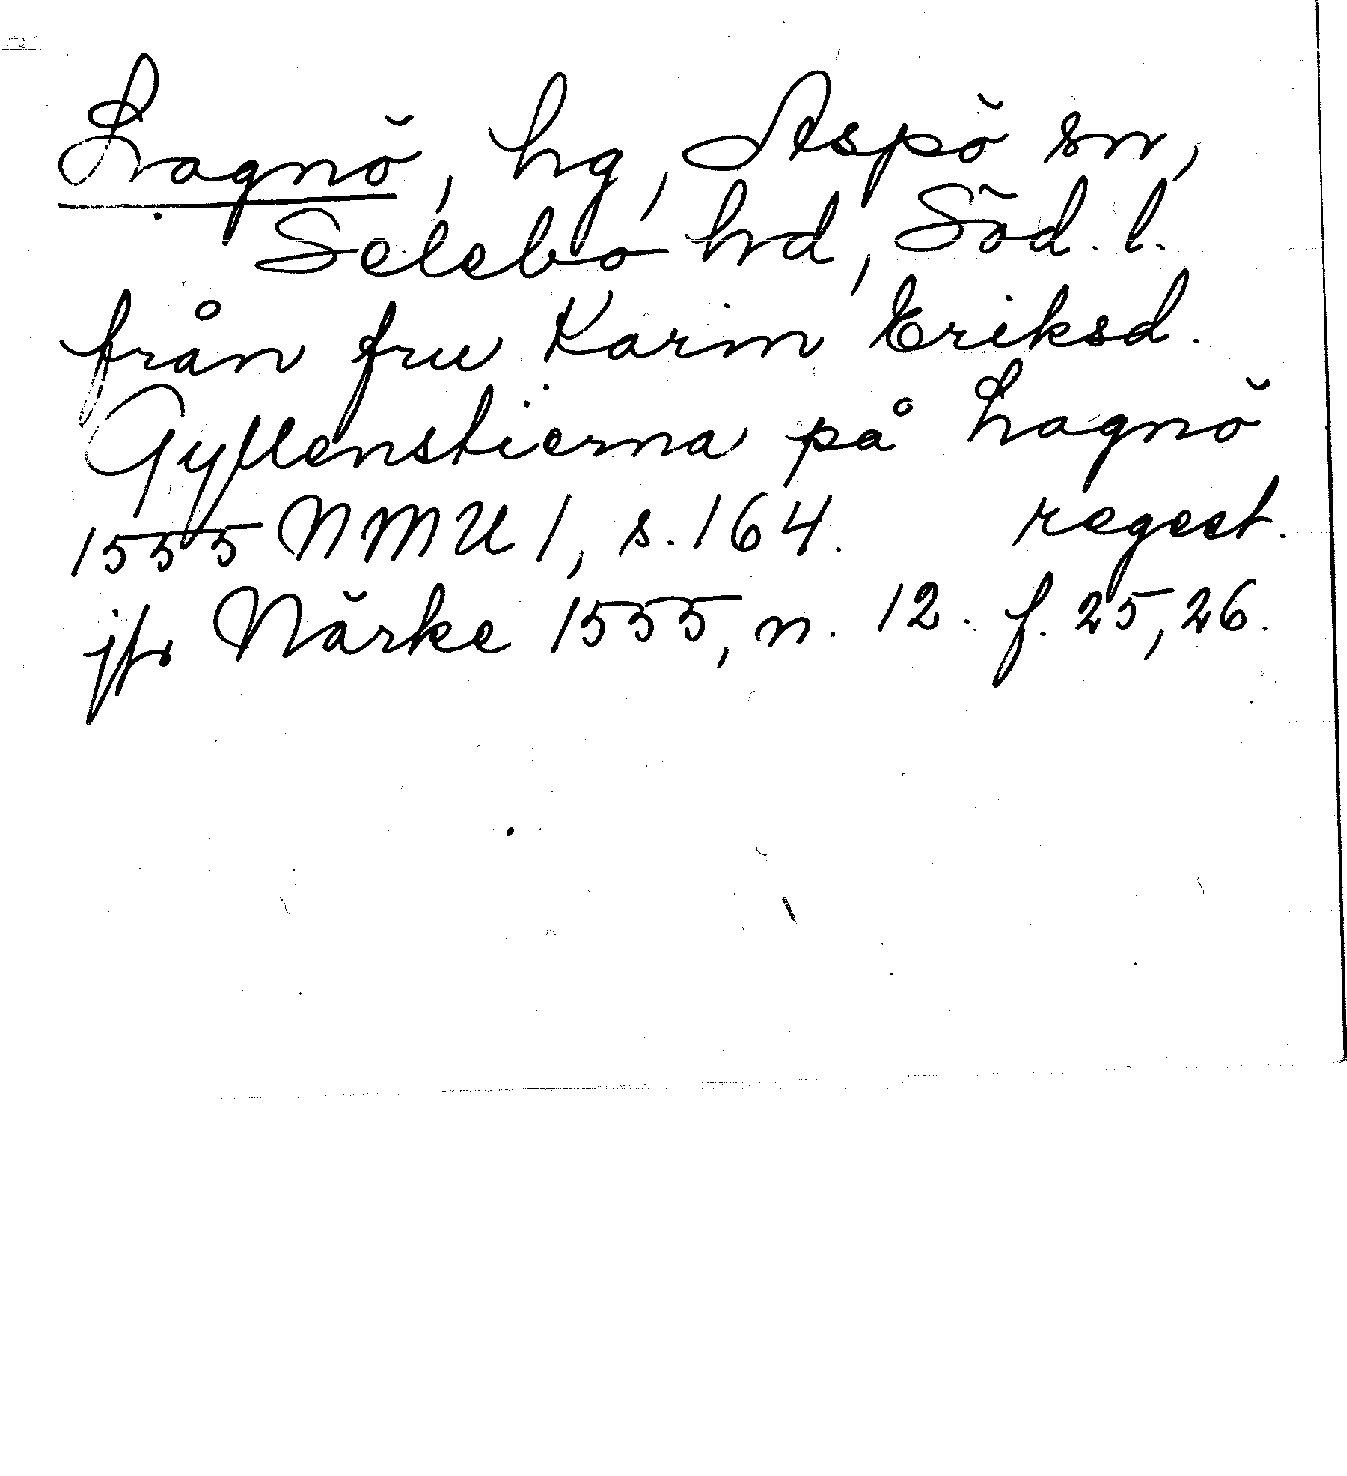 Lagnö, hg, Aspö sn,
Selebo hrd, Söd. l.
från fru Karin Eriksd.
Gyllenstierna på Lagnö
1555 NMU 1, s. 164. regest.
jfr Närke 1555, n. 12. f. 25, 26.